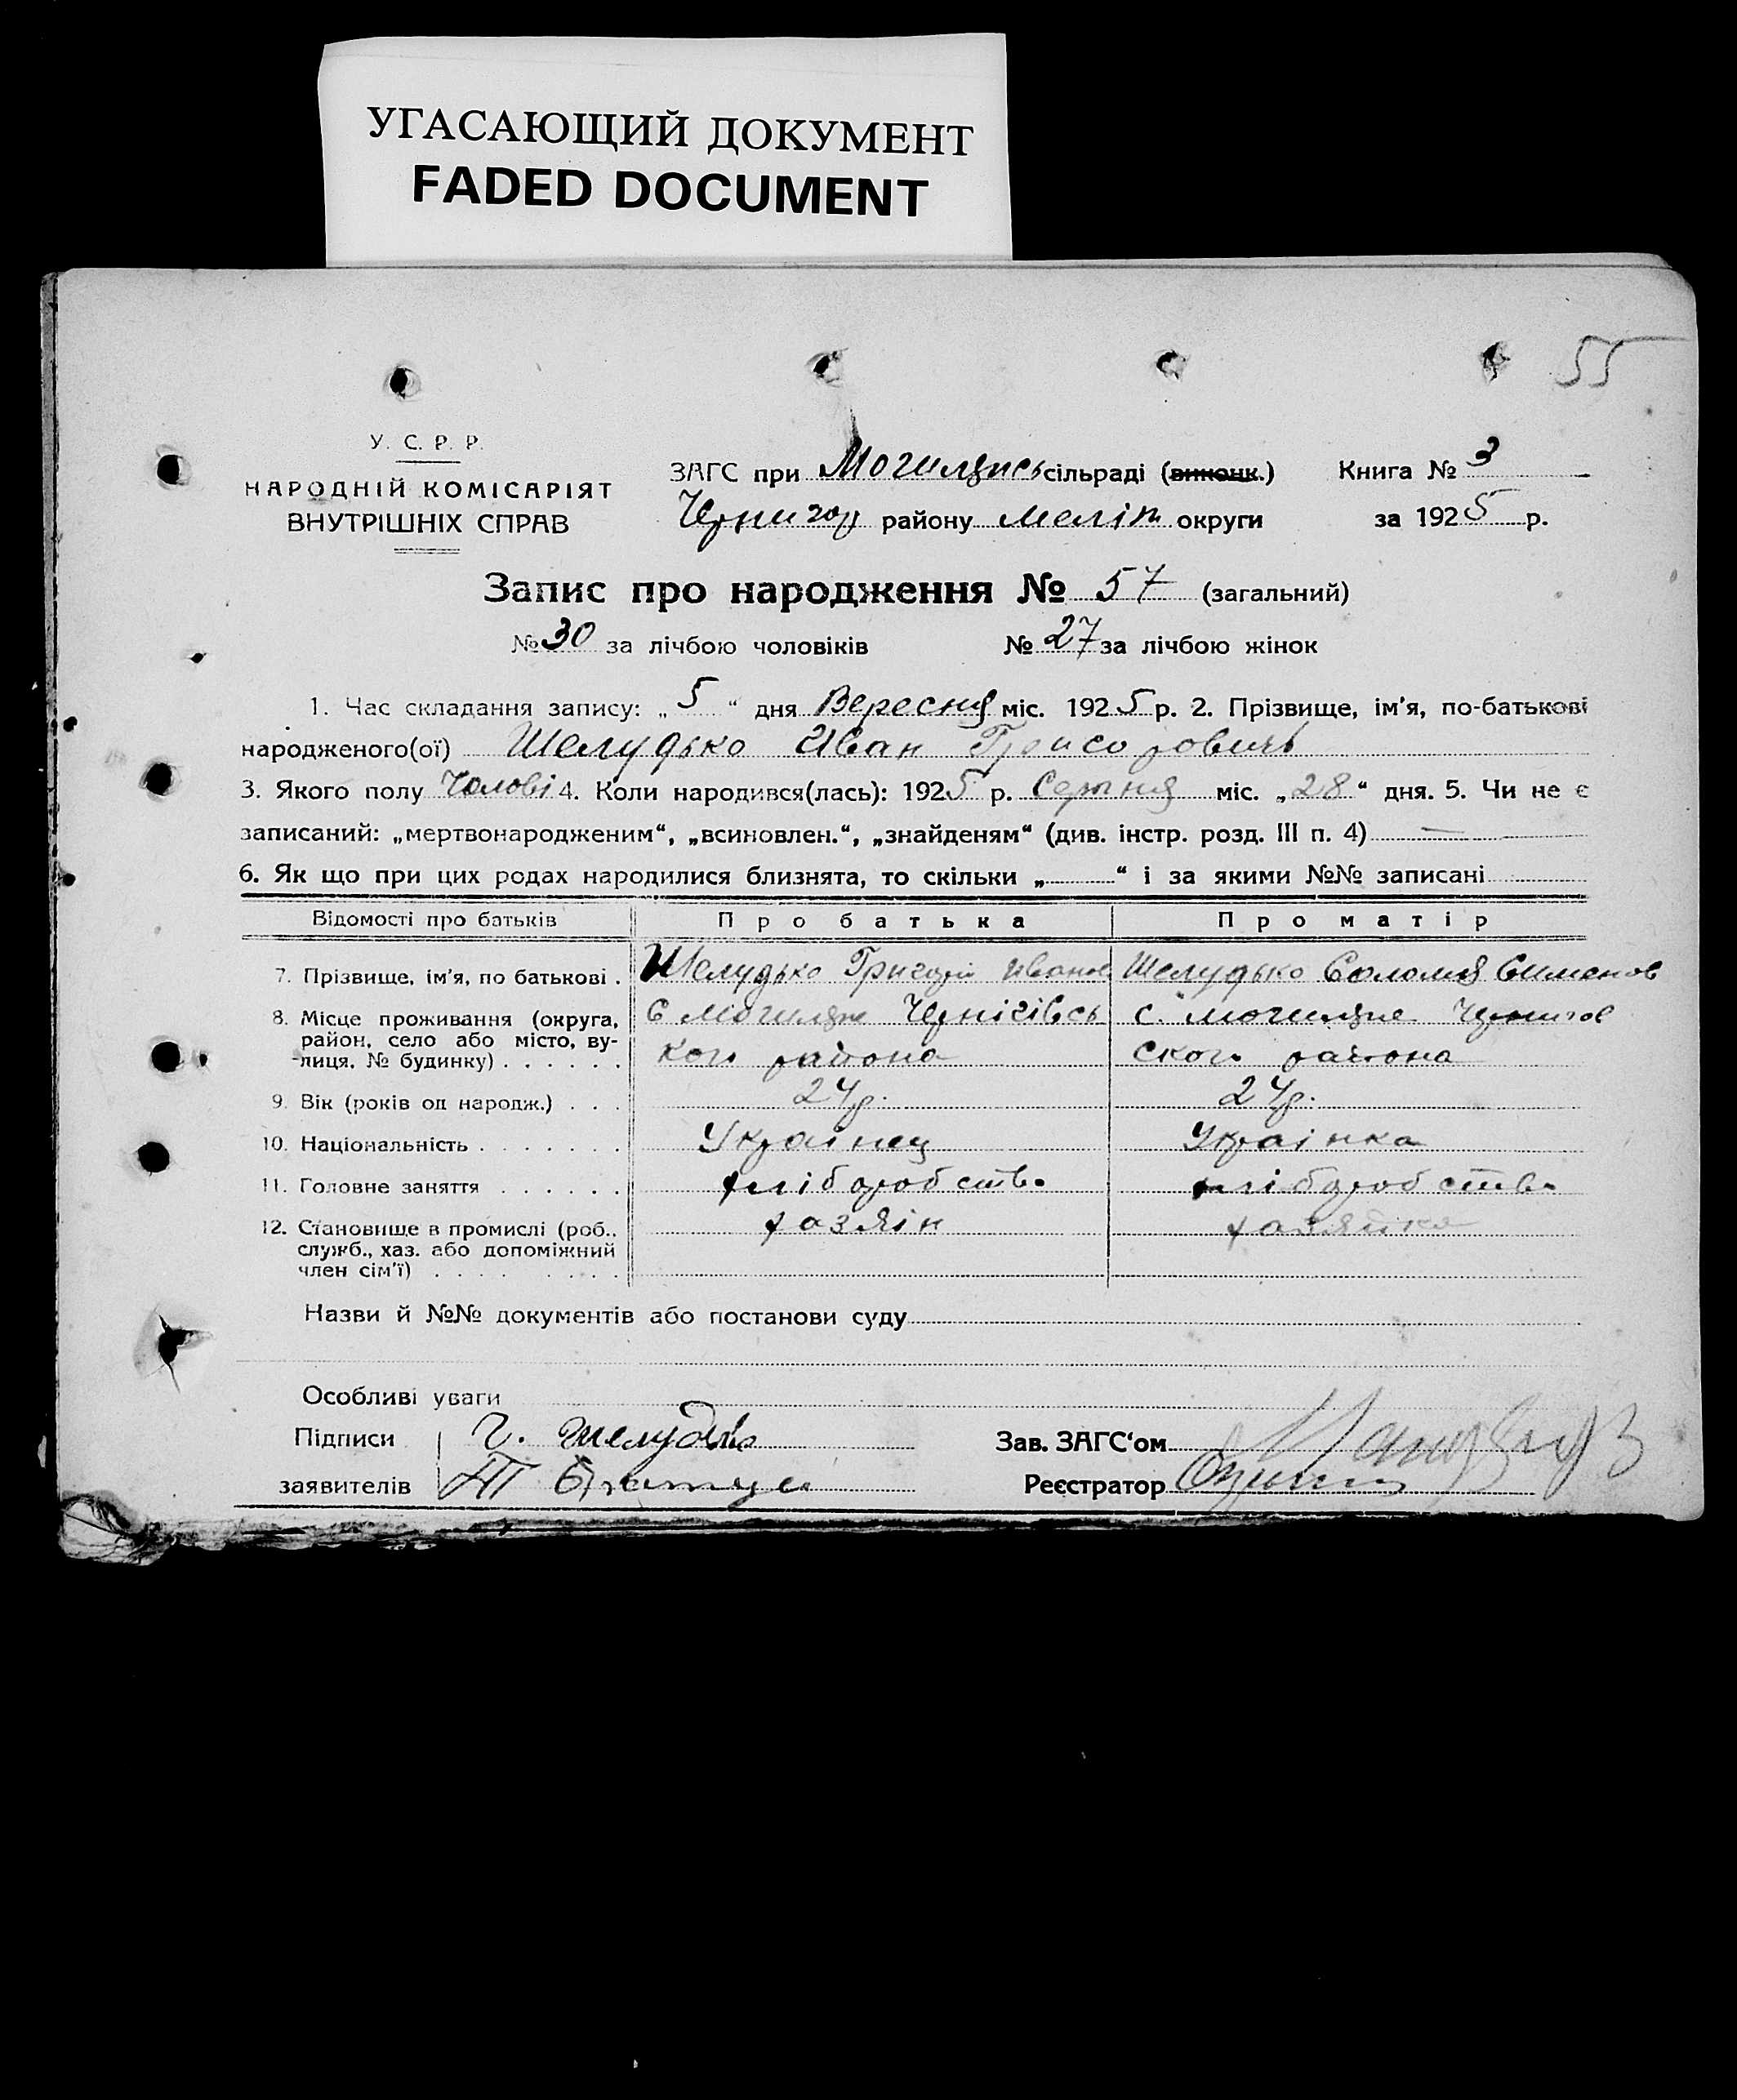 УГАСАЮЩИЙ ДОКУМЕНТ
FADED DOCUMENT
55
У. С. Р. Р.
НАРОДНІЙ КОМІСАРІЯТ
ВНУТРІШНІХ СПРАВ
ЗАГС при сільраді (виконк.) Книга № 3
району Меліт округи за 1925 р.
Запис про народження № 57 (загальний)
№ 30 за лічбою чоловіків № 27 за лічбою жінок
1. Час складання запису: „5“ дня Вересня міс. 1925 р. 2. Прізвище, ім'я, по-батькові
народженого(ої) Шелудько Иван
3. Якого полу Чолові 4. Коли народився(лась): 1925 р. Серпня міс. „28“ дня. 5. Чи не є
записаний: „мертвонародженим“, „всиновлен.“, „знайденям“ (див. інстр. розд. III п. 4) —
6. Як що при цих родах народилися близнята, то скільки „ “ і за якими №№ записані
Відомості про батьків Про батька Про матір
7. Прізвище, ім'я, по батькові . Шелудько Григорій Иванов Шелудько Соломия Сименов
8. Місце проживання (округа, район, село або місто, вулиця, № будинку) . . . . . . С Могиляне Чернігівсь кого района с. Могиляне Чернигов ского района
9. Вік (років од народж.) . . . 24р. 24р.
10. Національність . . . . . . . Украінец Украінка
11. Головне заняття . . . . . . хліборобство хліборобство
12. Становище в промислі (роб., служб., хаз. або допоміжний член сім'ї) . . . . . . . . хазяін хазяйка
Назви й №№ документів або постанови суду
Особливі уваги
Підписи Г. Шелудько Зав. ЗАГС'ом
заявителів Реєстратор